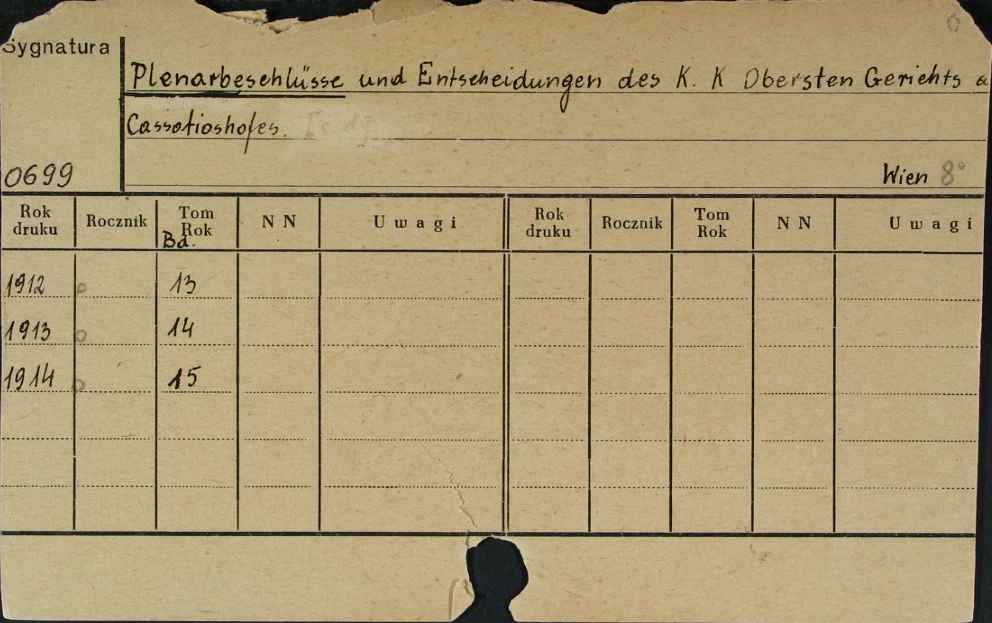 Sygnatura
Plenarbeschlüsse und Entscheidungen des K. K Obersten Gerichts
Cassatioshofes.
0699 Wien 8°
Rok druku Rocznik Tom Rok Bd. N N Uwagi Rok druku Rocznik Tom Rok N N Uwagi
1912 13
1913 14
1914 15